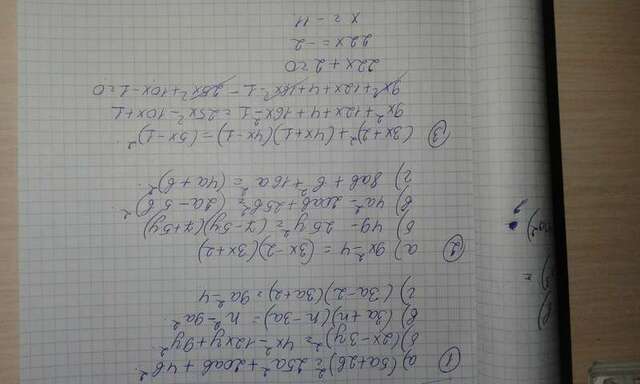 ① а) (5a+2b)² = 25a² + 20ab + 4b².
б) (2x-3y)² = 4x² - 12xy + 9y².
в) (3a+n)(n-3a) = n² - 9a².
г) (3a-2)(3a+2) = 9a² - 4
② а) 9x² - 4 = (3x-2)(3x+2)
б) 49 - 25y² = (7-5y)(7+5y)
в) 4a² - 20ab + 25b² = (2a-5b)².
г) 8ab + b² + 16a² = (4a+b)².
③ (3x+2)² + (4x+1)(4x-1) = (5x-1)²
9x² + 12x + 4 + 16x² - 1 = 25x² - 10x + 1
9x² + 12x + 4 + 16x² - 1 - 25x² + 10x - 1 = 0
22x + 2 = 0
22x = -2
x = -11